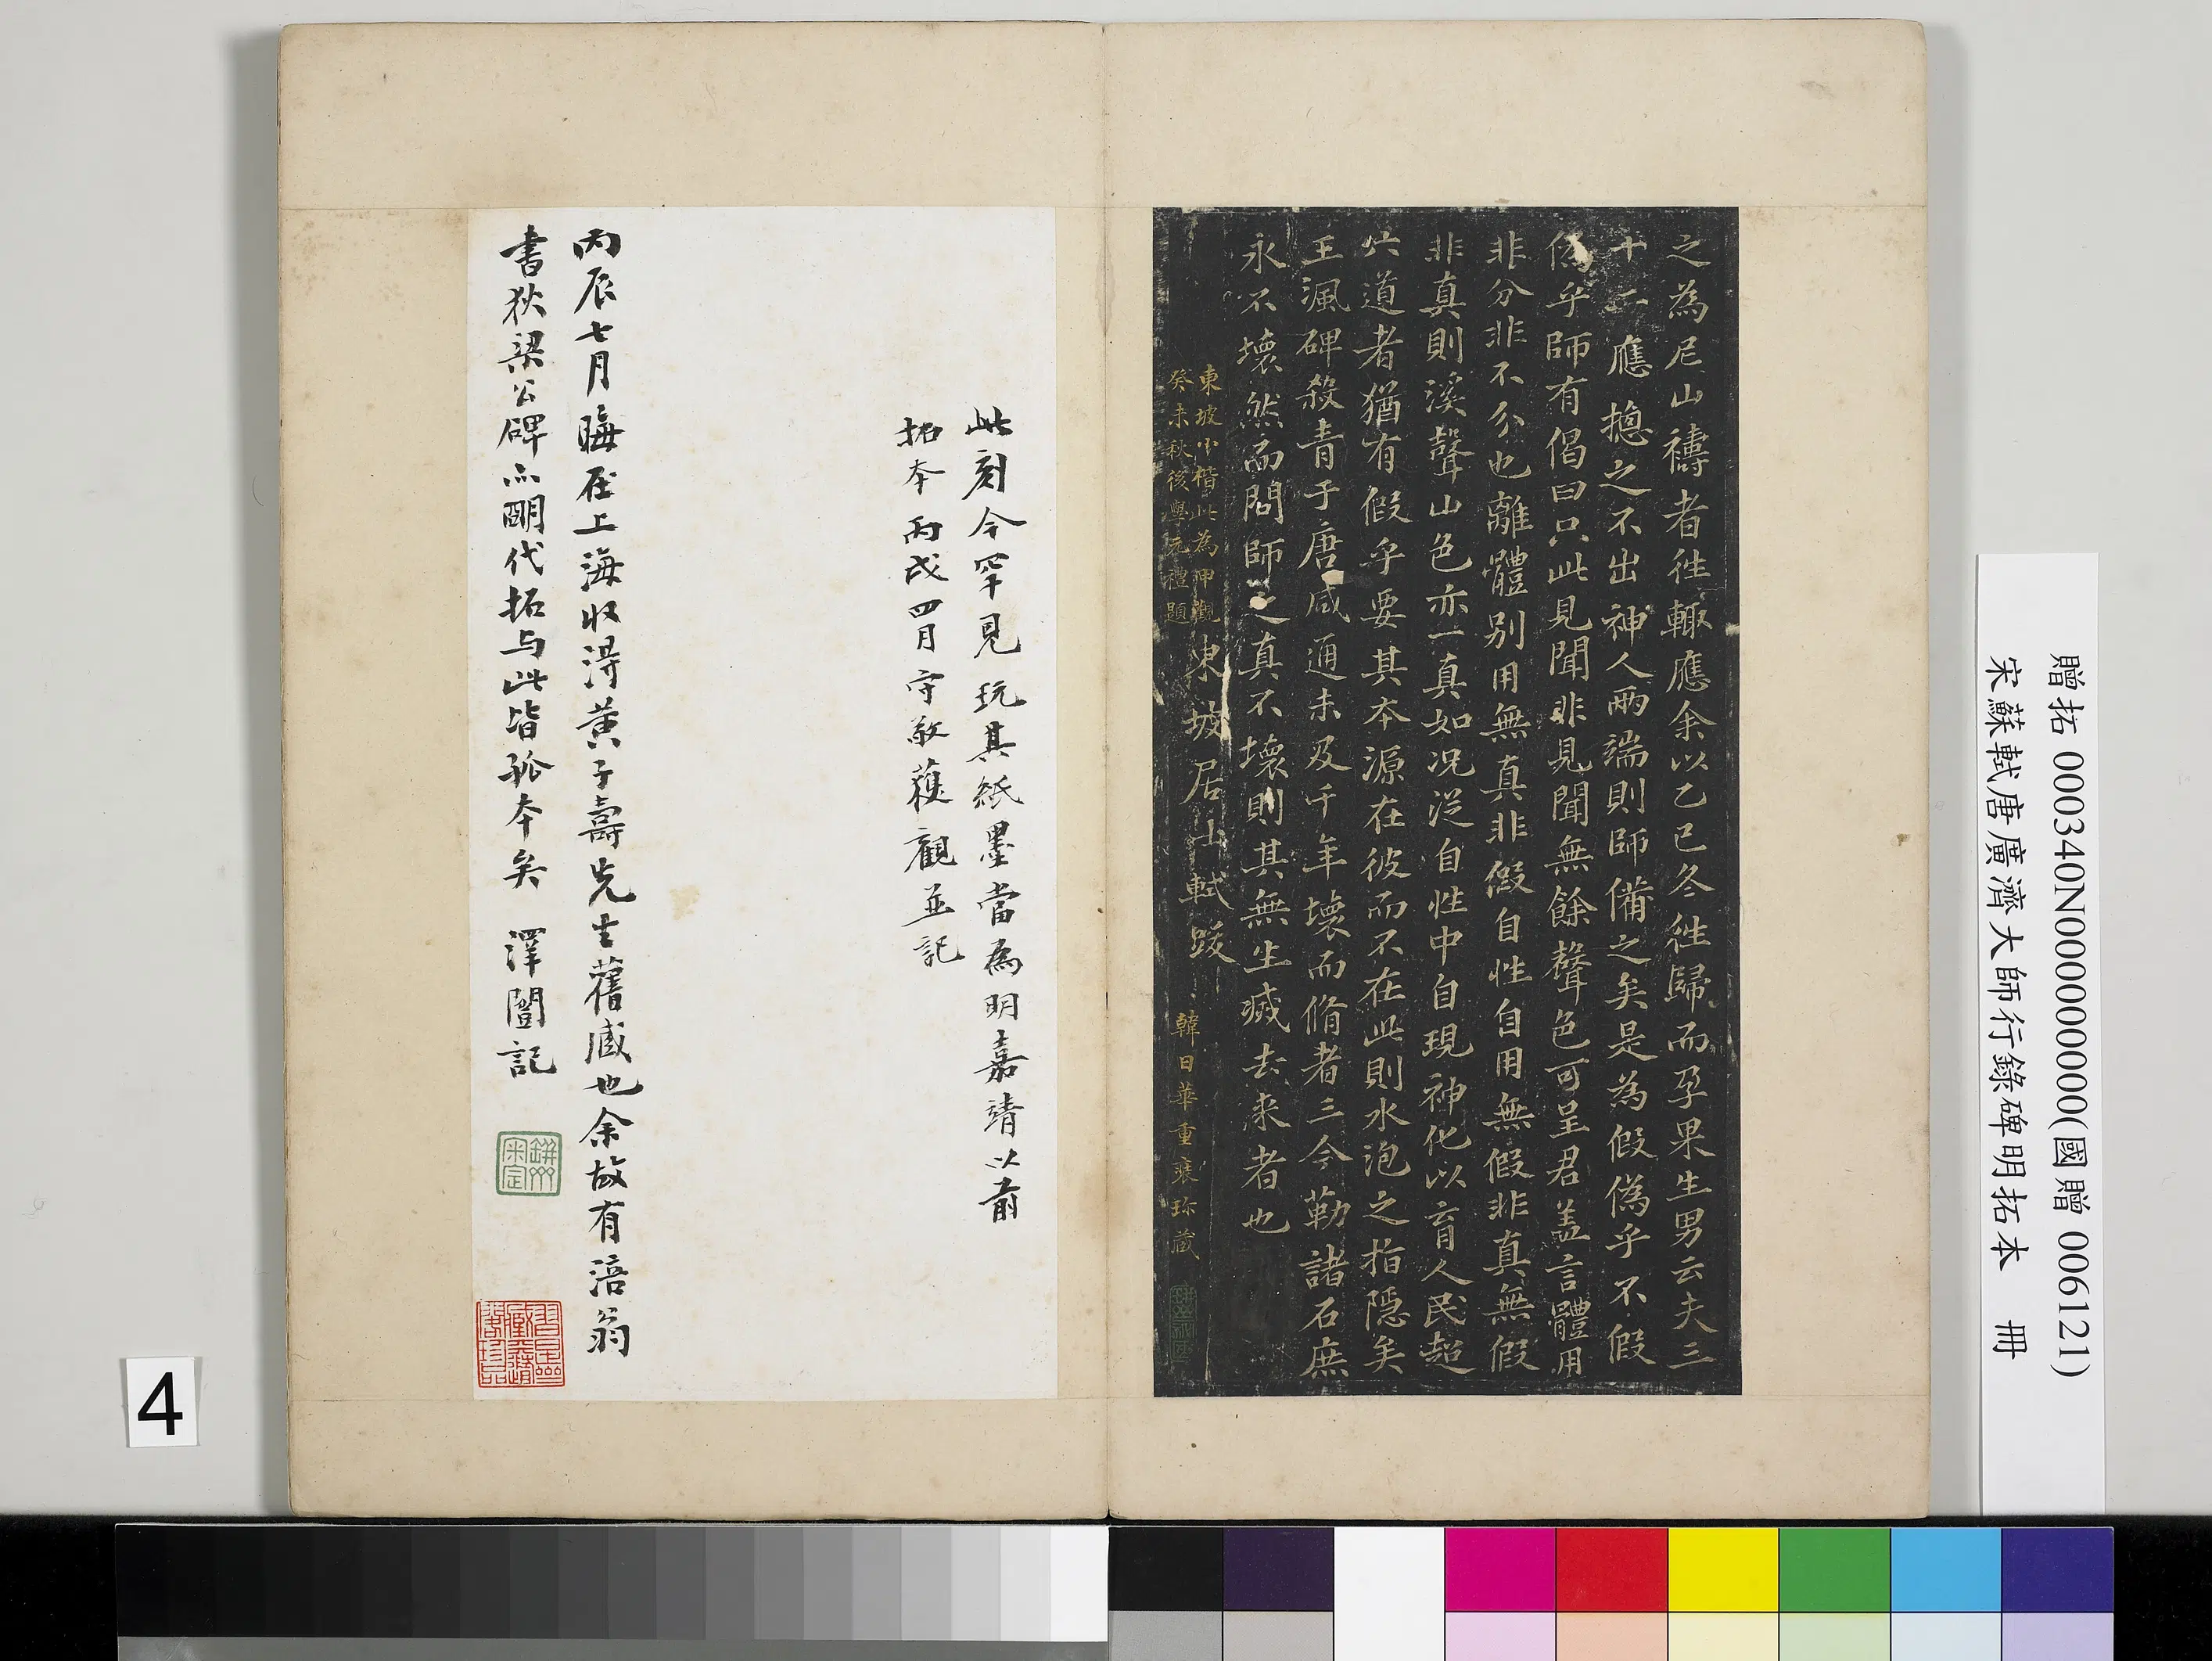 贈拓 000340N000000000(國贈 006121)
宋蘇軾唐廣濟大師行錄碑明拓本 冊
之為尼山禱者徃輙應余以乙巳冬徃歸而孕果生男云夫三
十二應摠之不出神人兩端則師備之矣是為假偽乎不假
偽乎師有偈曰只此見聞非見聞無餘聲色可呈君盖言體用
非分非不分也離體別用無真非假自性自用無假非真無假
非真則溪聲山色亦一真如况從自性中自現神化以育人民超
六道者猶有假乎要其本源在彼而不在此則水泡之指隱矣
王諷碑殺青于唐咸通未及千年壞而脩者三今勒諸石庶
永不壞然而問師之真不壞則其無生滅去来者也
東坡居士軾跋
東坡小楷此為甲觀
癸未秋後學元禮題
韓日華重裝珍藏
此刻今罕見玩其紙墨當為明嘉靖以前
拓本 丙戌四月守敬獲觀並記
丙辰七月晦在上海收得黃子壽先生舊藏也余故有涪翁
書狄梁公碑亦明代拓与此皆孤本矣 澤闓記